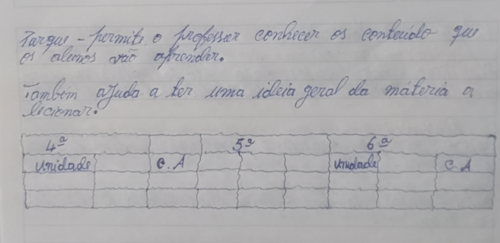 Purque - permite o professor conhecer os conteúdo que
os alunos vão aprender.
Tambem ajuda a ter uma ideia geral da máteria a
lecionar.
4ª 5ª 6ª
Unidade C.A Unidade C.A